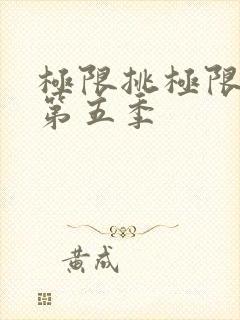 極限挑極限
第五季
黄成